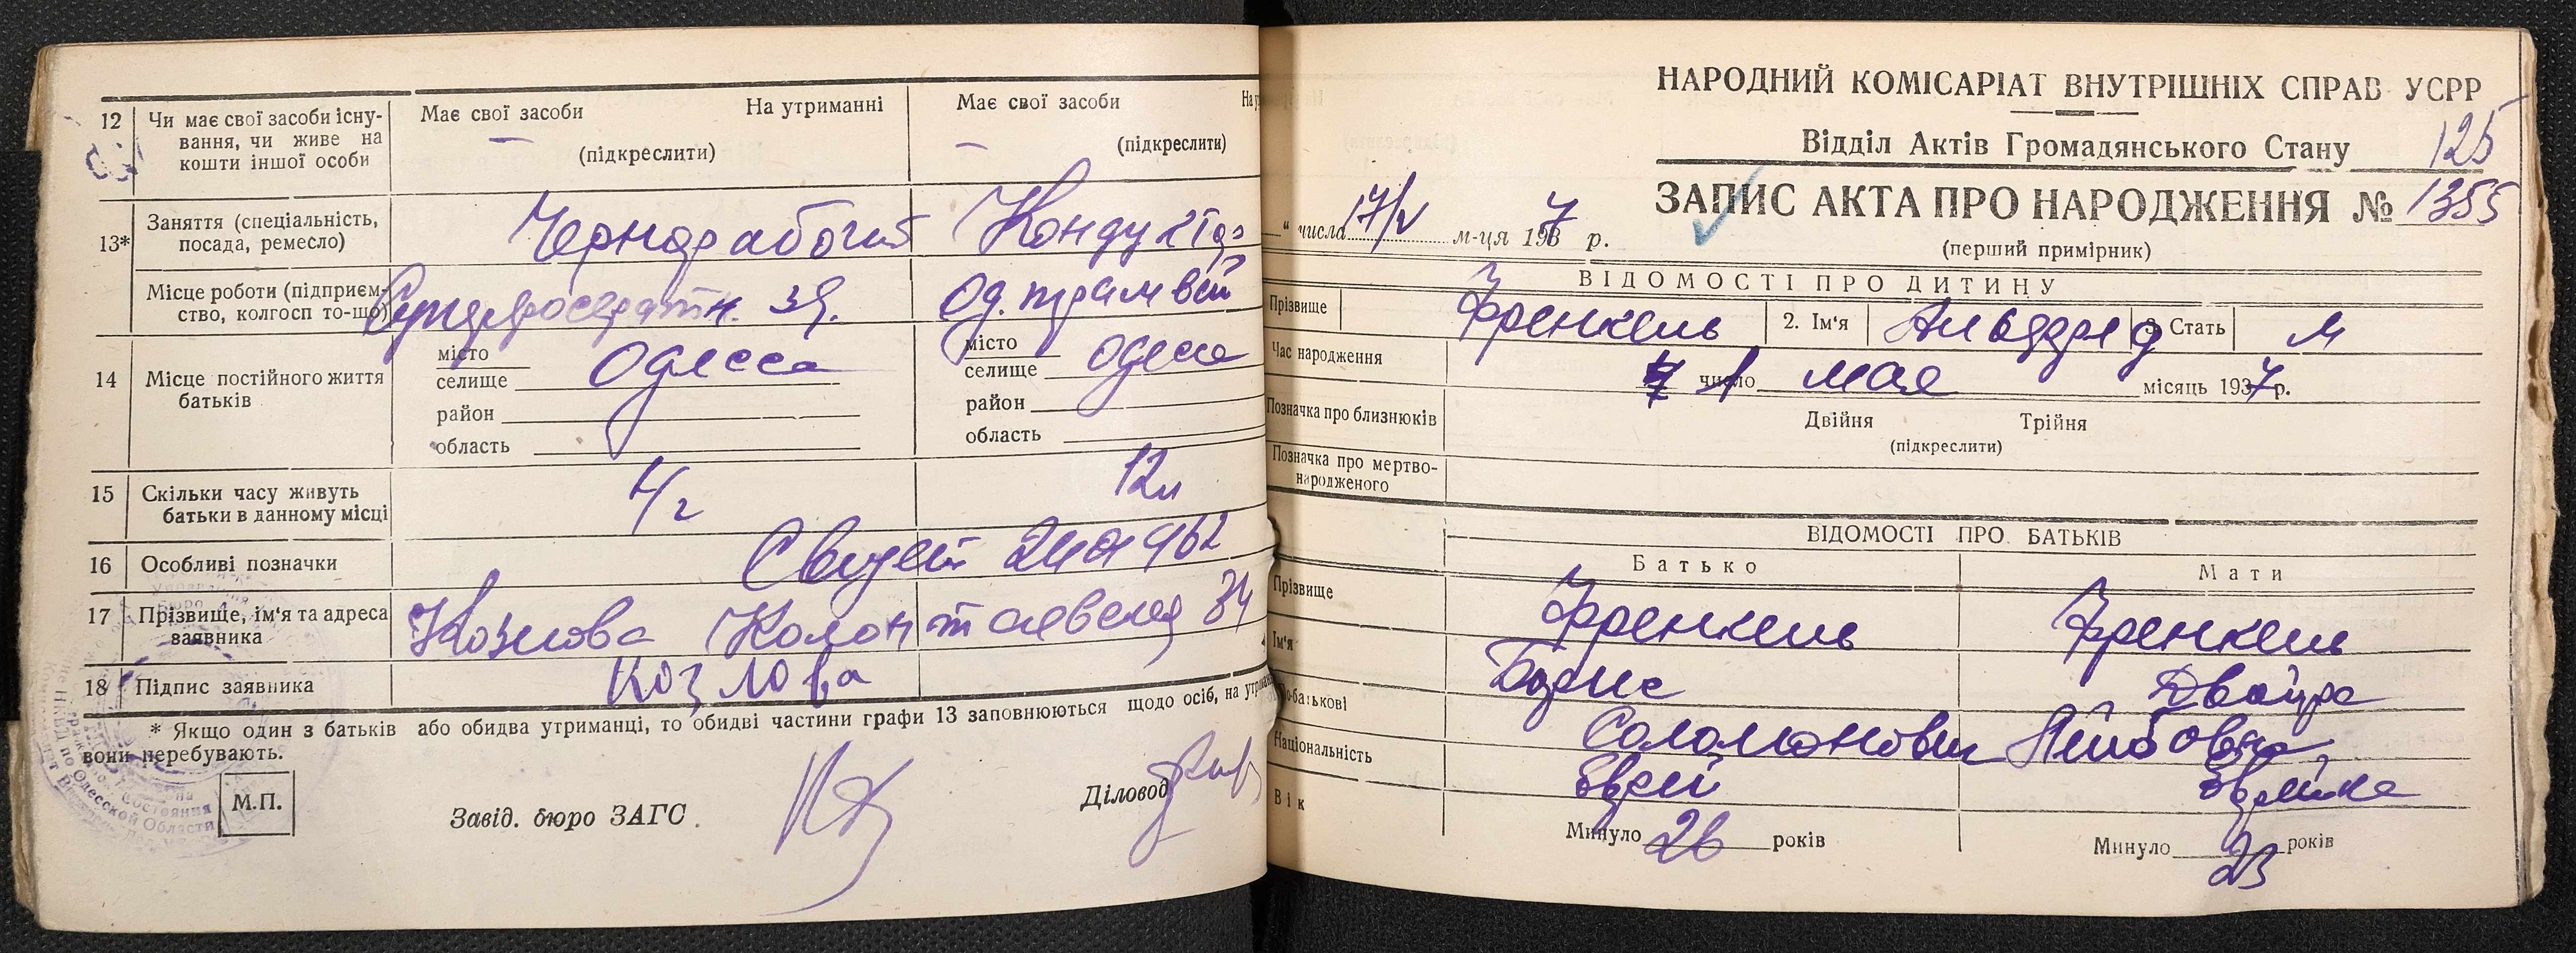 12 Чи має свої засоби існу-
вання, чи живе на
кошти іншої особи
Має свої засоби На утриманні
(підкреслити)
Має свої засоби
(підкреслити)
13* Заняття (спеціальність,
посада, ремесло)
Чернорабочий Кондуктор
Місце роботи (підприєм-
ство, колгосп то-що)
Од. трамвай
14 Місце постійного життя
батьків
місто
селище Одесса
район
область
місто
селище Одесса
район
область
15 Скільки часу живуть
батьки в данному місці
12л
16 Особливі позначки
17 Прізвище, ім'я та адреса
заявника
Козлова 34
18 Підпис заявника
Козлова
* Якщо один з батьків або обидва утриманці, то обидві частини графи 13 заповнюються щодо осіб, на
вони перебувають.
М.П.
Завід. бюро ЗАГС
Діловод
НАРОДНИЙ КОМІСАРІАТ ВНУТРІШНІХ СПРАВ УСРР
Відділ Актів Громадянського Стану
125
ЗАПИС АКТА ПРО НАРОДЖЕННЯ № 1355
(перший примірник)
" числа 17/V м-ця 1937 р.
ВІДОМОСТІ ПРО ДИТИНУ
Прізвище Френкель 2. Ім'я 3. Стать М
Час народження
1 число мая місяць 1937 р.
Позначка про близнюків
Двійня Трійня
(підкреслити)
Позначка про мертво-
народженого
ВІДОМОСТІ ПРО БАТЬКІВ
Батько Мати
Прізвище Френкель Френкель
Ім'я Борис Двойра
По-батькові Соломонович Лейбовна
Національність Еврей Еврейка
Вік
Минуло 26 років Минуло 23 років